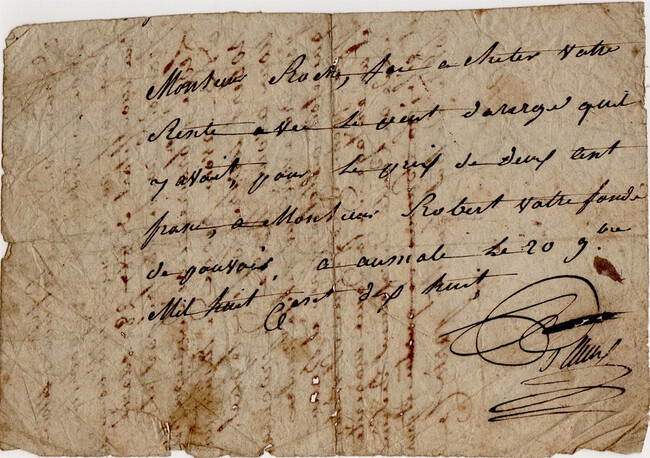 Monsieur Roche, jai acheter votre
Rente avec le peut darierge quil
y avoit, pour le prix de deux cent
franc, a Monsieur Robert votre fondé
de pouvoir, a aumale le 20 9.bre
Mil huit Cent dix huit,